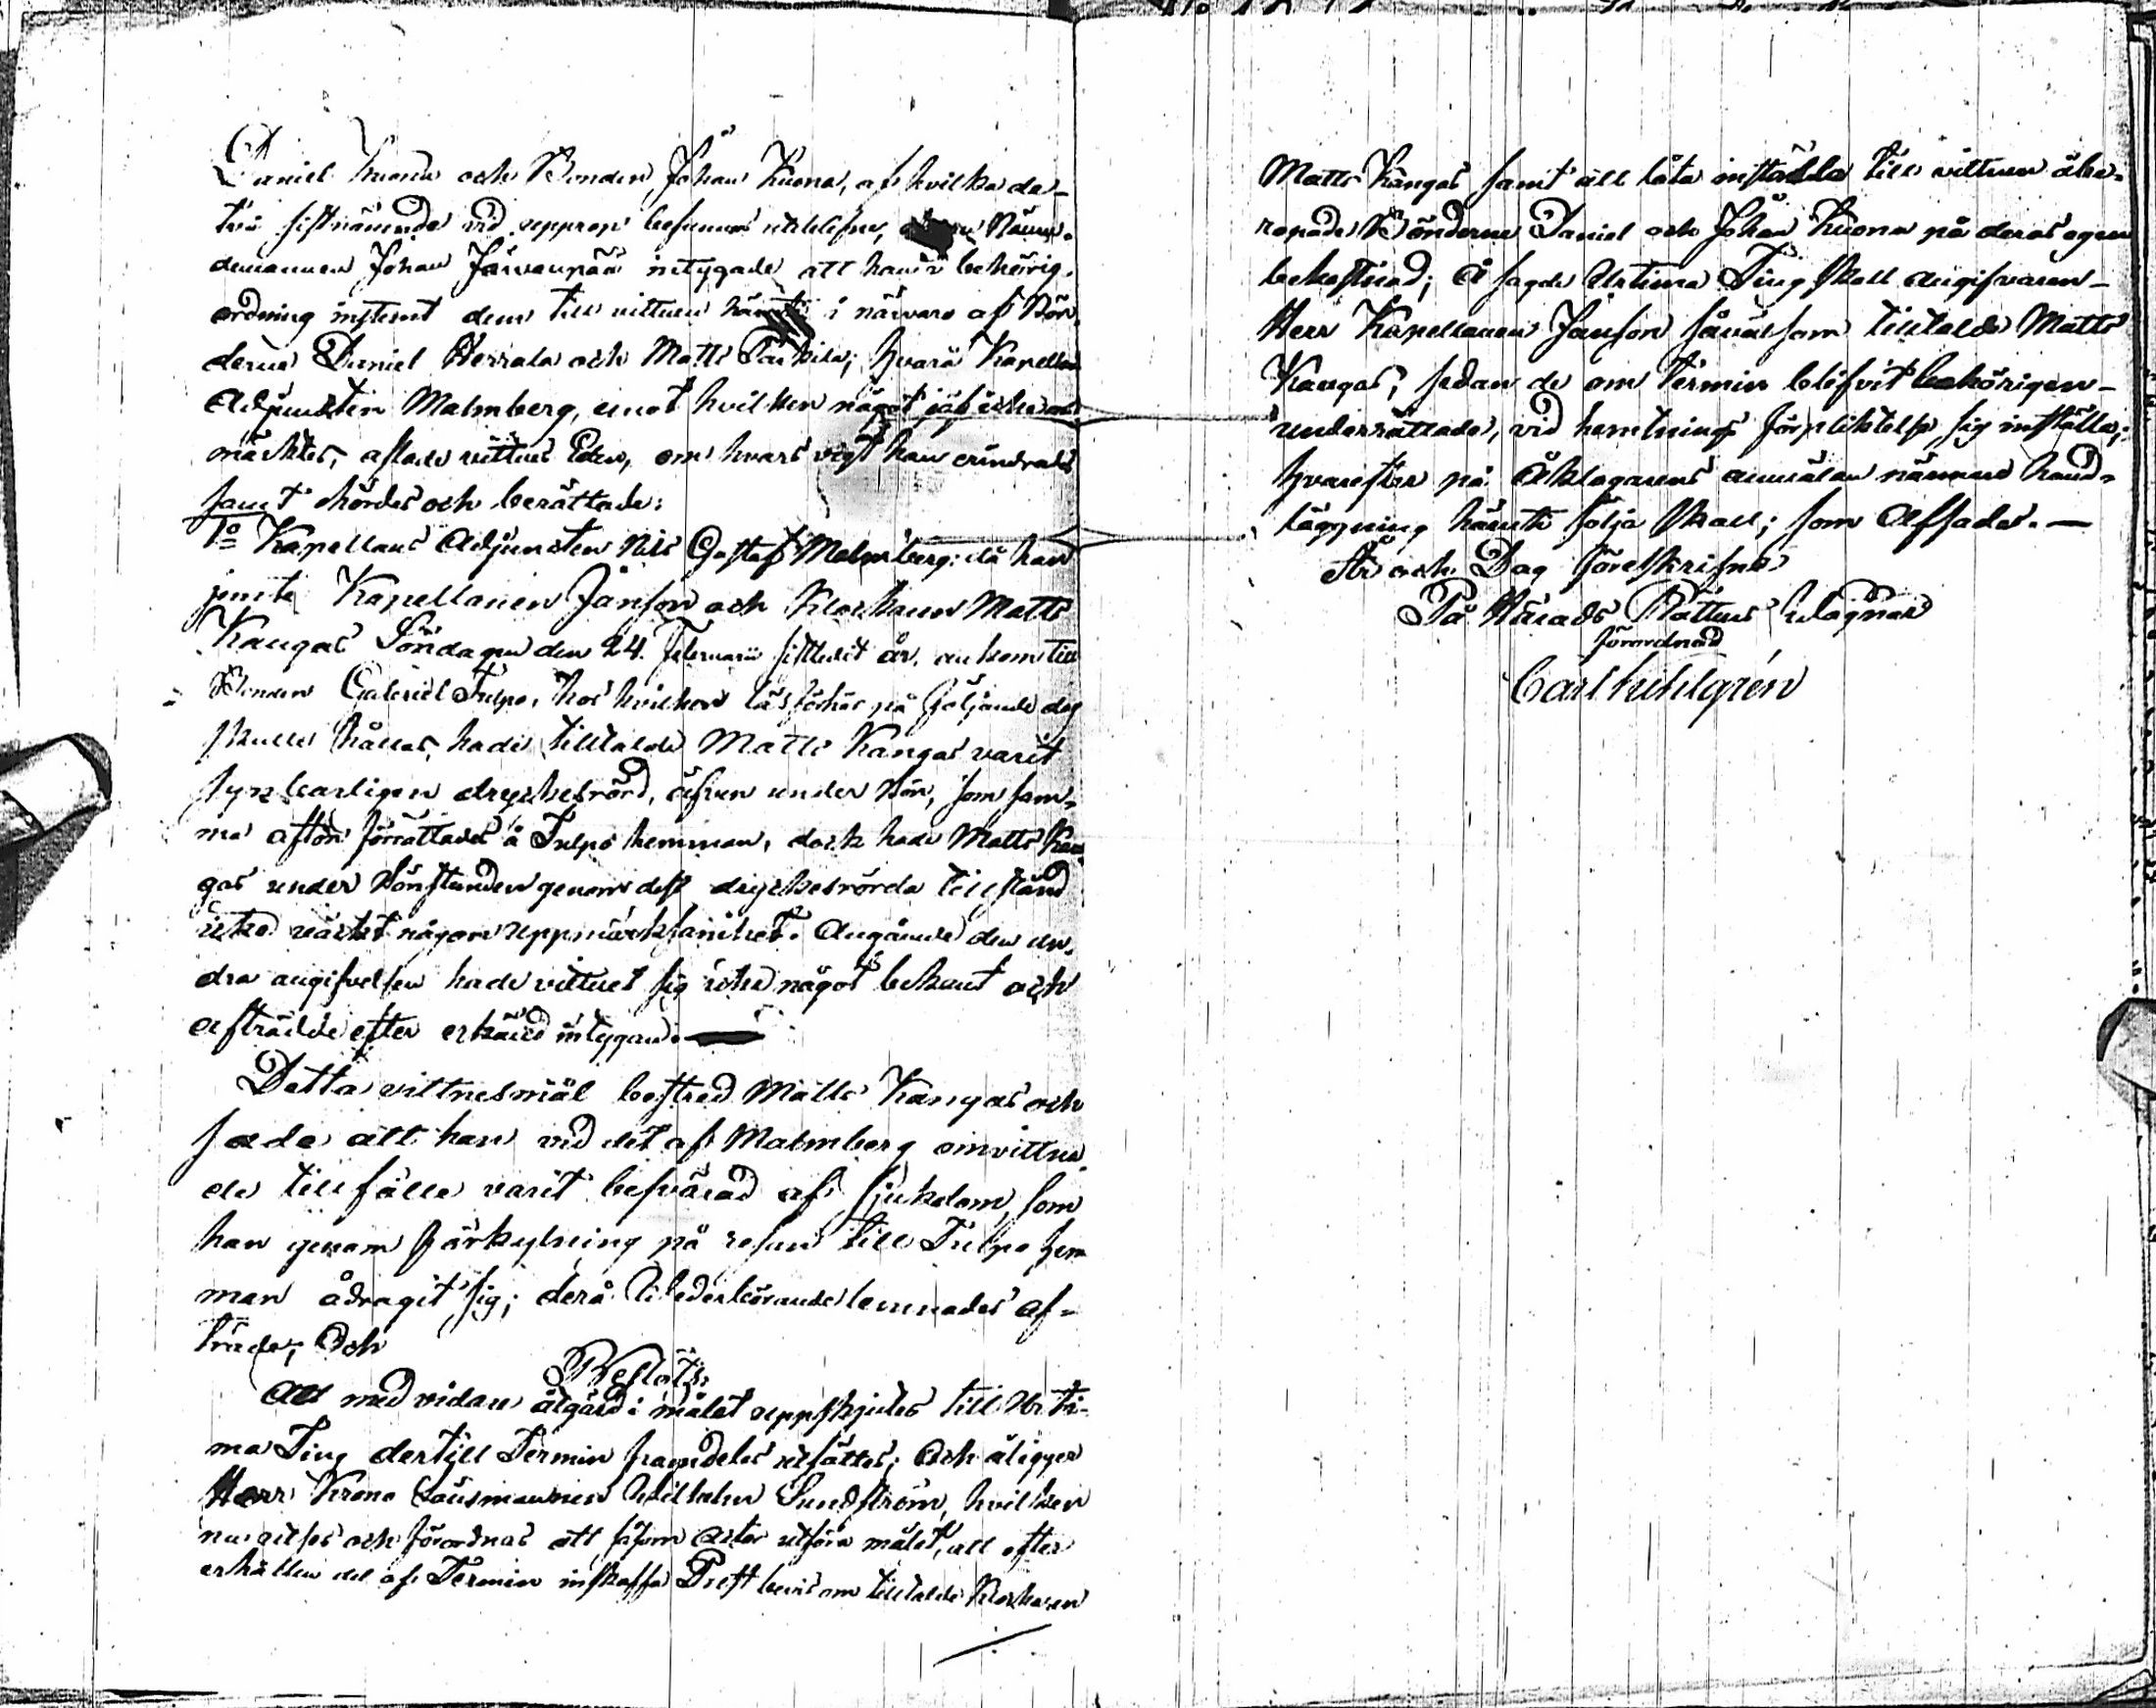 Daniel Kuona och Bonden Johan Kuona, af hvilka de
två sistnämnde vid upprop befunnos uteblifne, Nämn-
demannen Johan Järvenpää intygade att han i behörig
ordning instemt dem till vittnen härute i närvaro af Bön-
derne Daniel Herrala och Matts Parkila; hvarå Kapellans
Adjuncten Malmberg, emot hvilken något jäf icke an-
märktes, aflade vittnes Eden, om hvars vigt han erindrades
samt hördes och berättade:
1o Kapellans Adjuncten Nils Gustaf Malmberg: då han
jemte Kapellanen Janson och Klockaren Matts
Kangas Söndagen den 24. Februarii sistledit år, ankom till
Bonden Gabriel Tulpo, hos hvilken läsförhör på följande dag
skulle hållas, hade tilltalde Matts Kangas varit
synbarligen dryckesrörd, äfven under Bön, som sam-
ma afton förrättades å Tulpo hemman, dock hade Matts Kan-
gas under Bönstunden genom dess dryckesrörda tillstånd
icke väckt någon uppmärksamhet. Angående den an-
dra angifvelsen hade vittnet sig icke något bekant och
afträdde efter erkänd intygan.
Detta vittnesmål bestred Matts Kangas och
sade att han vid det af Malmberg omvittna-
de tillfälle varit besvärad af sjukdom, som
han genom förkylning på resan till Tulpo hem-
man ådragit sig; derå vederbörande lemnades af-
träde; Och
Beslöts:
Att med vidare åtgärd i målet uppskjutes till Urti-
ma Ting dertill Termin framdeles utsättes; Och åligger
Herr Krono Länsmannen Wilhelm Sundström, hvilken
nu utses och förordnas att såsom Actor utföra målet, att efter
erhållen del af Termin inskaffa Prest bevis om tilltalde Klockaren
Matts Kangas samt att låta inställa till vittnen åbe-
ropade Bönderne Daniel och Johan Kuona på deras egen
bekostnad; Å sagde Urtima Ting skall angifvaren
Herr Kapellanen Janson såväl som tilltalde Matts
Kangas, sedan de om Termin blifvit behörigen
underrättade, vid hemtnings förpliktelse sig inställa;
hvarefter på Åklagarens anmälan närmare hand-
läggning häruti följa skall; som Afsades. —
År och Dag föreskrifne
På Härads Rättens Wägnar
förordnad
Carl Kihlgrén